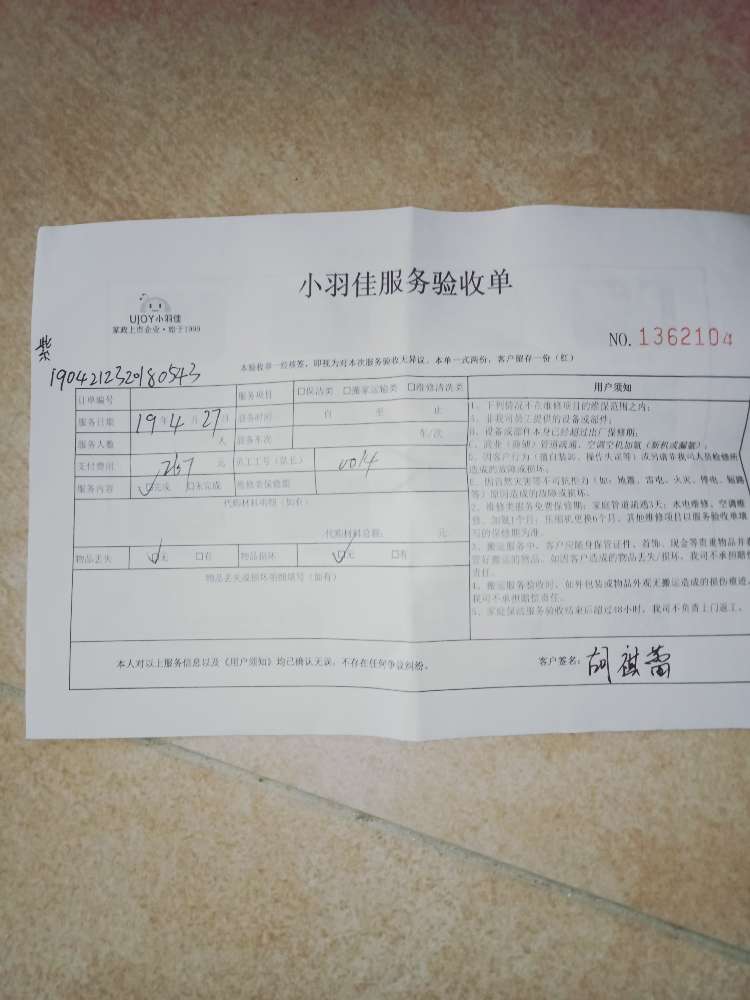 小羽佳服务验收单
UJOY小羽佳
家政上市企业·始于1999
NO. 1362104
紫
1904212320180543
本验收单一经核签，即视为对本次服务验收无异议。本单一式两份，客户留存一份（红）
订单编号 服务项目 口保洁类 口搬家运输类 口维修清洗类
服务日期 19年4月27日 服务时间 自 至 止
服务人数 人 服务车次 车/次
支付费用 元 员工工号（队长） 0014
服务内容 口完成 口未完成 维修类保修期
代购材料明细（如有）
代购材料总额： 元
物品丢失 口无 口有 物品损坏 口无 口有
物品丢失或损坏明细填写（如有）
本人对以上服务信息以及《用户须知》均已确认无误，不存在任何争议纠纷。
客户签名：胡祺蕾
用户须知
1、下列情况不在维修项目的维保范围之内：
非我司员工提供的设备或部件；
设备或部件本身已经超过出厂保修期；
造成的故障或损坏；
等）原因造成的故障或损坏。
2、维修类服务免费保修期：家庭管道疏通3天；水电维修、空调维
修、加氟1个月；压缩机更换6个月。其他维修项目以服务验收单填
写的保修期为准。
3、搬运服务中，客户应随身保管证件、首饰、现金等贵重物品并
管好搬运的物品。如因客户造成的物品丢失/损坏，我司不承担赔偿
责任。
4、搬运服务验收时，如外包装或物品外观无搬运造成的损伤痕迹，
我司不承担赔偿责任。
5、家庭保洁服务验收结束后超过48小时，我司不负责上门返工。